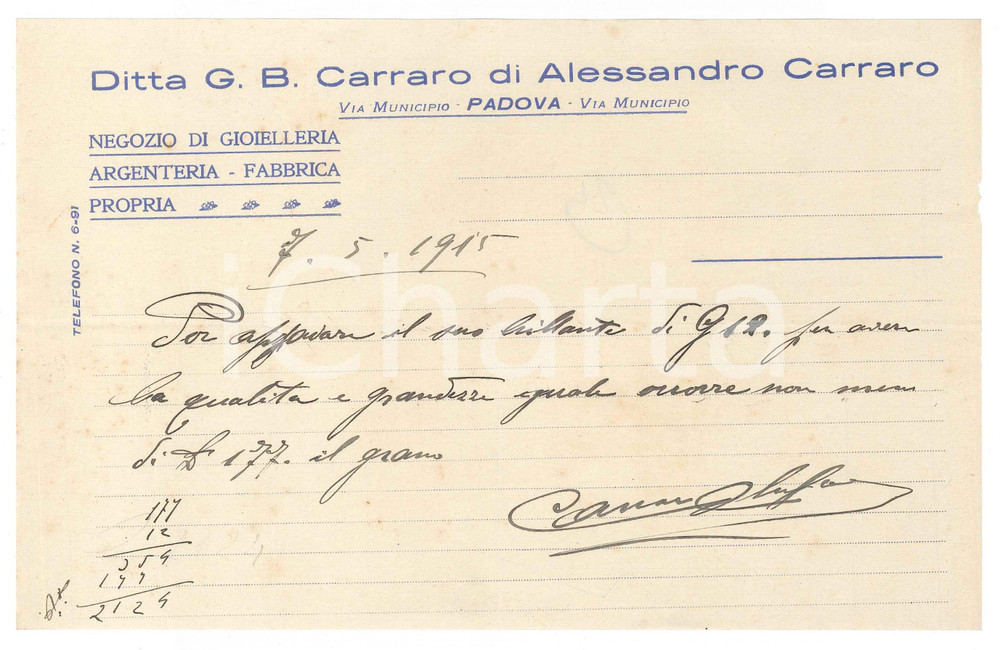 Ditta G. B. Carraro di Alessandro Carraro
VIA MUNICIPIO - PADOVA - VIA MUNICIPIO
NEGOZIO DI GIOIELLERIA
ARGENTERIA - FABBRICA
PROPRIA
TELEFONO N. 6-91
7. 5. 1915
iCharta
Per il suo brillante di G 12. per avere
la qualità e grandezza eguale occorre non meno
di £ 177. il grano
Carraro
177
12
354
177
2124